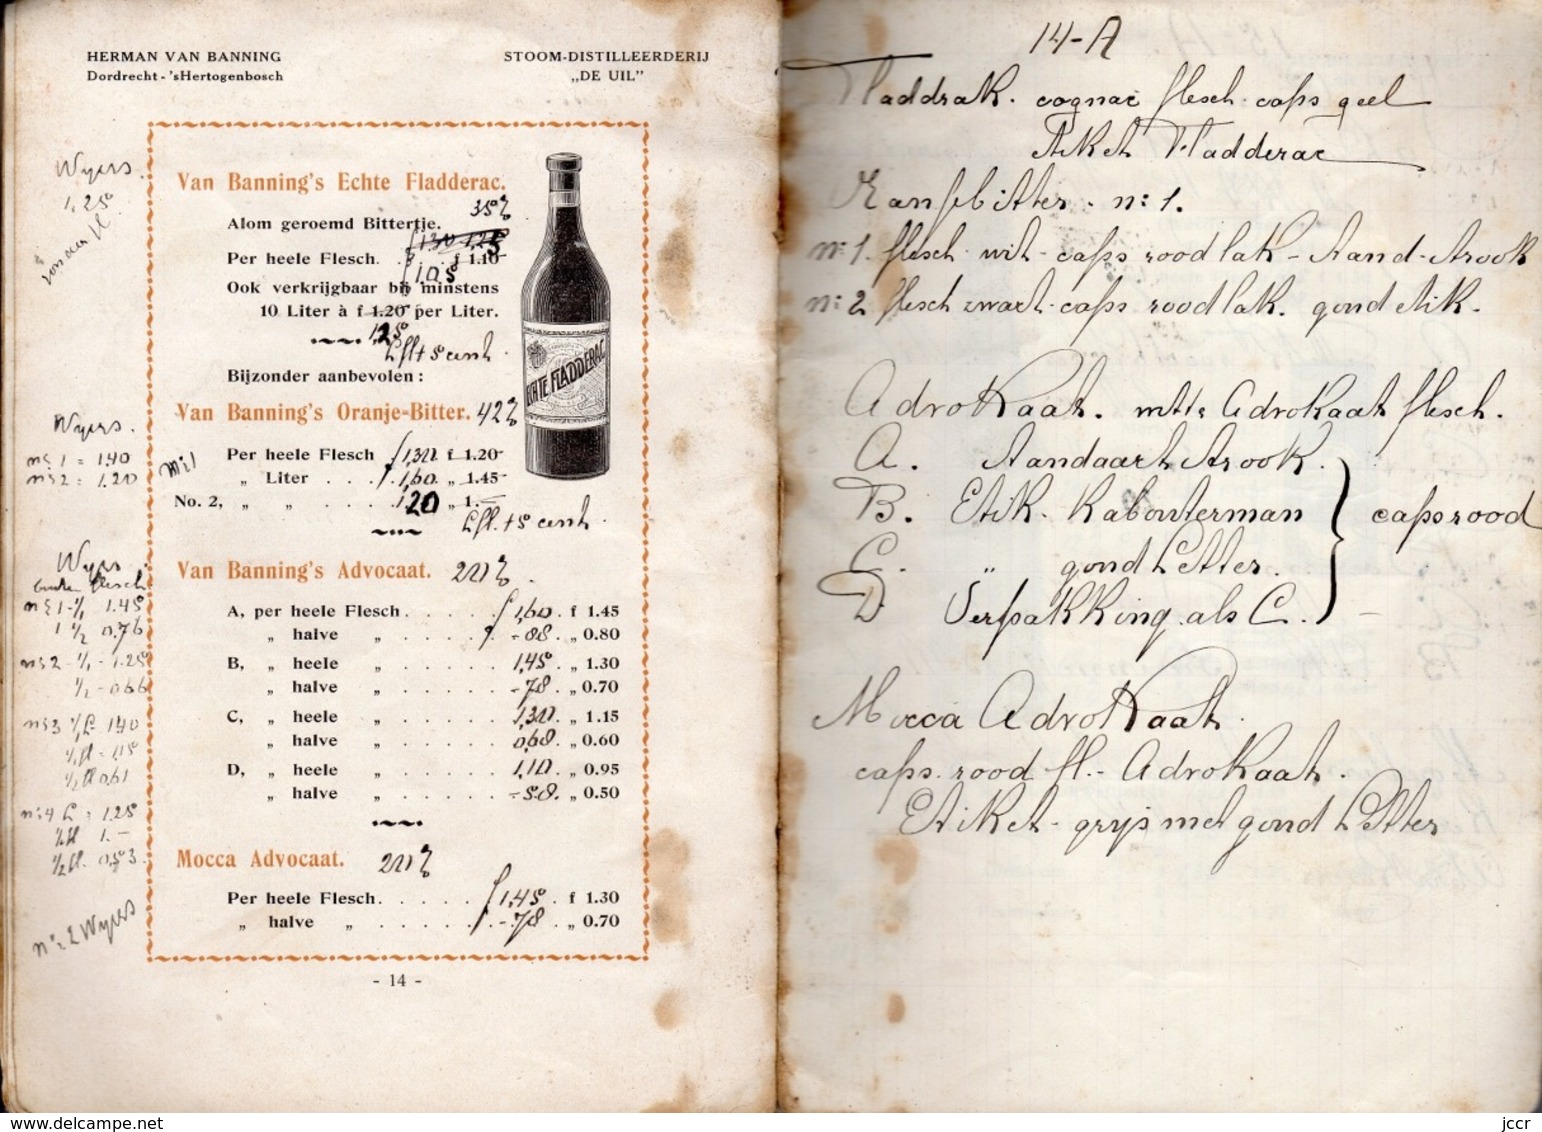 HERMAN VAN BANNING
Dordrecht - 'sHertogenbosch
STOOM-DISTILLEERDERIJ
„DE UIL"
Wyers.
1,25
Van Banning's Echte Fladderac.
35%
Alom geroemd Bittertje.
1.30 1,25
Per heele Flesch. . . . f 1.10
105
Ook verkrijgbaar bij minstens
10 Liter à f 1.20 per Liter.
1,25
½ fl + 5 cent.
Bijzonder aanbevolen:
ECHTE FLADDERAC
Van Banning's Oranje-Bitter. 42%
Wyers.
no 1 = 1.40
no 2 = 1.20
No 1
Per heele Flesch f 1,30 f 1.20
„ Liter . . . f 1,60 „ 1.45
No. 2, „ „ . . . . 1,20 „ 1.—
½ fl. + 5 cent.
Wyers
flesch
no 1 - 1/1 1.45
1 ½ 0.76
no 2 - 1/1 - 1.25
½ - 066
no 3 1/1 L 1,40
1/1 fl = 1,15
½ fl 0,61
no 4 L = 1.25
1/1 fl 1.-
½ fl. 0,53
no 2 Wyers
Van Banning's Advocaat. 20%.
A, per heele Flesch . . . . . f 1,60 . f 1.45
„ halve „ . . . . . -88. „ 0.80
B, „ heele „ . . . . . 1,45 . „ 1.30
„ halve „ . . . . . -78 . „ 0.70
C, „ heele „ . . . . . 1,30 . „ 1.15
„ halve „ . . . . . 0,68 . „ 0.60
D, „ heele „ . . . . . 1,10 . „ 0.95
„ halve „ . . . . . -58. „ 0.50
Mocca Advocaat. 20%
Per heele Flesch. . . . . f 1,45 . f 1.30
„ halve „ . . . . . -78 . „ 0.70
- 14 -
14-A
Fladdrak. cognac flesch. caps geel
Etiket Fladderac
Ranjebitter. no 1.
no 1. flesch wit - caps rood lak - Stand. Strook
no 2 flesch zwart - caps rood lak. goud etik.
Advokaat. Advokaat flesch.
A. Standaart Strook.
B. Etik. Kabouterman
caps rood
C. „ goud Letter.
D Verpakking als C.
Mocca Advokaat.
caps. rood fl. - Advokaat.
Etiket - grijs met goud Letter
jccr